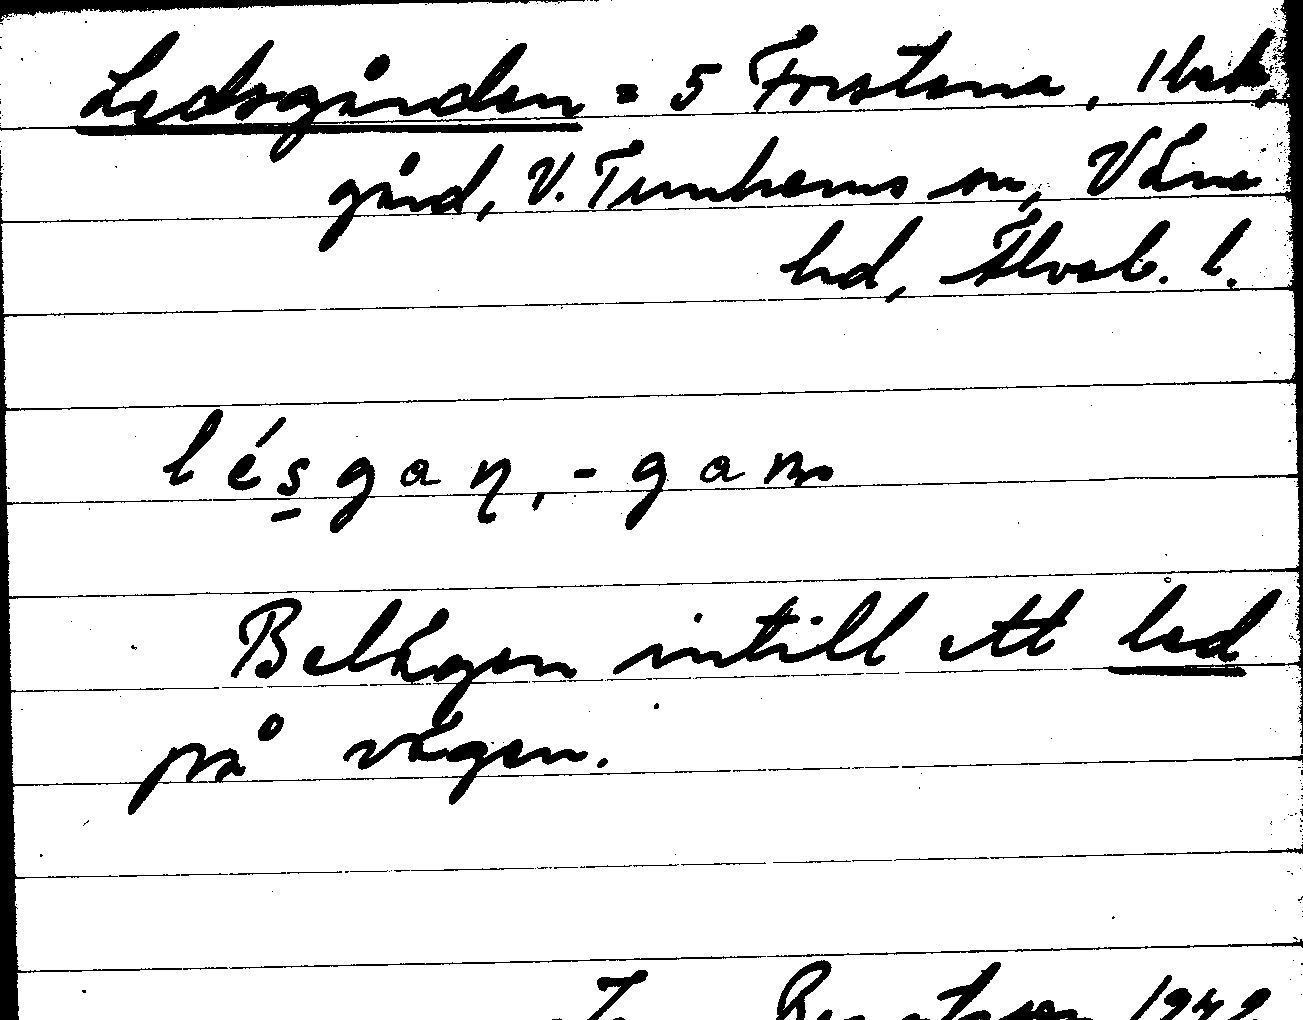 Ledsgården = 5 Forstena, 1 bek.
gård, V. Tunhems sn, Väne
hd, Älvsb. l.
lésgaɳ, -gaɳ
Belägen intill ett led
på vägen.
1949